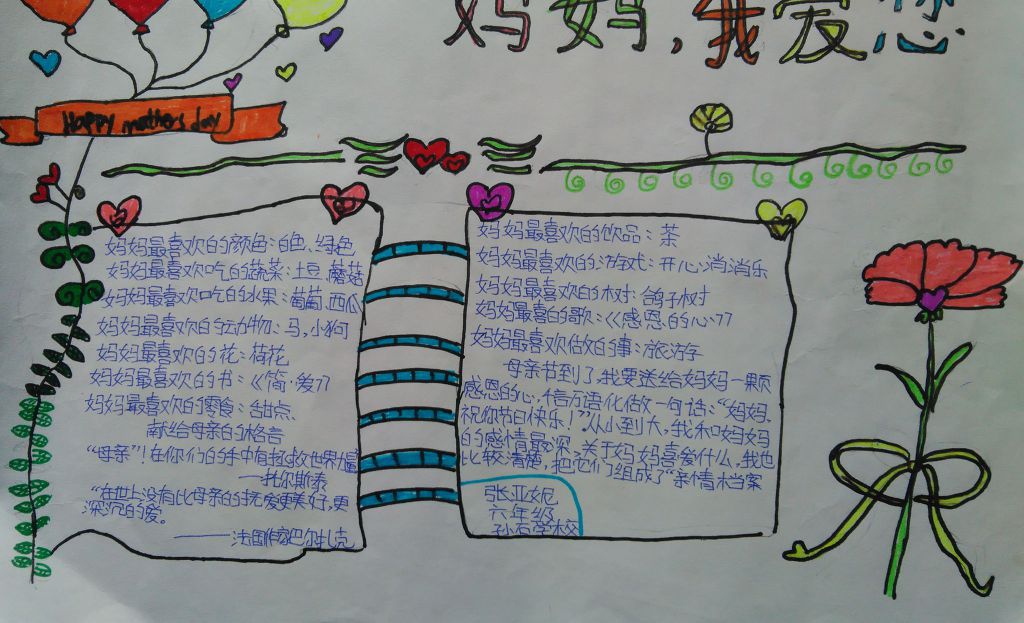 妈妈,我爱您
Happy mothers day
妈妈最喜欢的颜色:白色、绿色
妈妈最喜欢吃的蔬菜:土豆,蘑菇
妈妈最喜欢吃的水果:葡萄,西瓜
妈妈最喜欢的动物:马,小狗
妈妈最喜欢的花:荷花
妈妈最喜欢的书:《简·爱》
妈妈最喜欢的零食:甜点
献给母亲的格言
“母亲”!在你们的手中有拯救世界力量
——托尔斯泰
“在世上没有比母亲的抚爱更美好,更
深沉的爱。
——法国作家巴尔扎克
妈妈最喜欢的饮品:茶
妈妈最喜欢的游戏:开心消消乐
妈妈最喜欢的树:鸽子树
妈妈最喜的歌:《感恩的心》
妈妈最喜欢做的事:旅游
母亲节到了,我要送给妈妈一颗
感恩的心,千言万语化做一句话:“妈妈,
祝你节日快乐!”从小到大,我和妈妈
的感情最深,关于妈妈喜爱什么,我也
比较清楚,把它们组成了“亲情档案
张亚妮
六年级
孙石学校